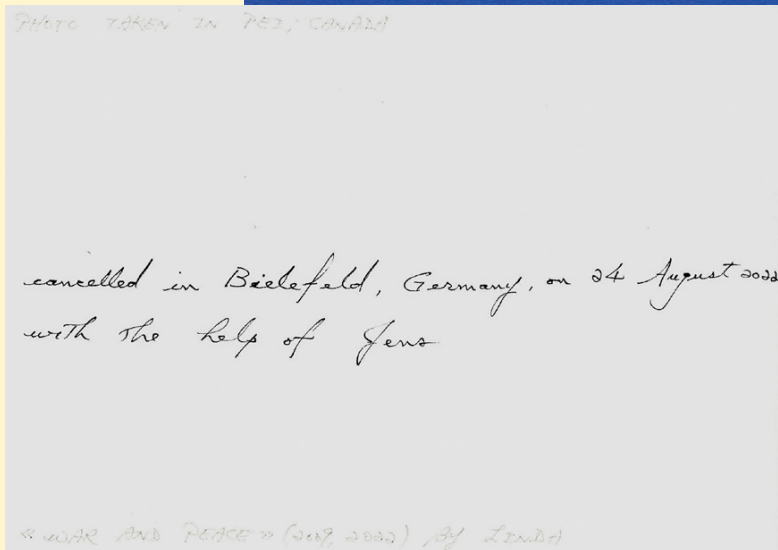 PHOTO TAKEN IN PEI, CANADA
cancelled in Bielefeld, Germany, on 24 August 2022
with the help of Jens
« WAR AND PEACE » (2009, 2022) BY LINDA